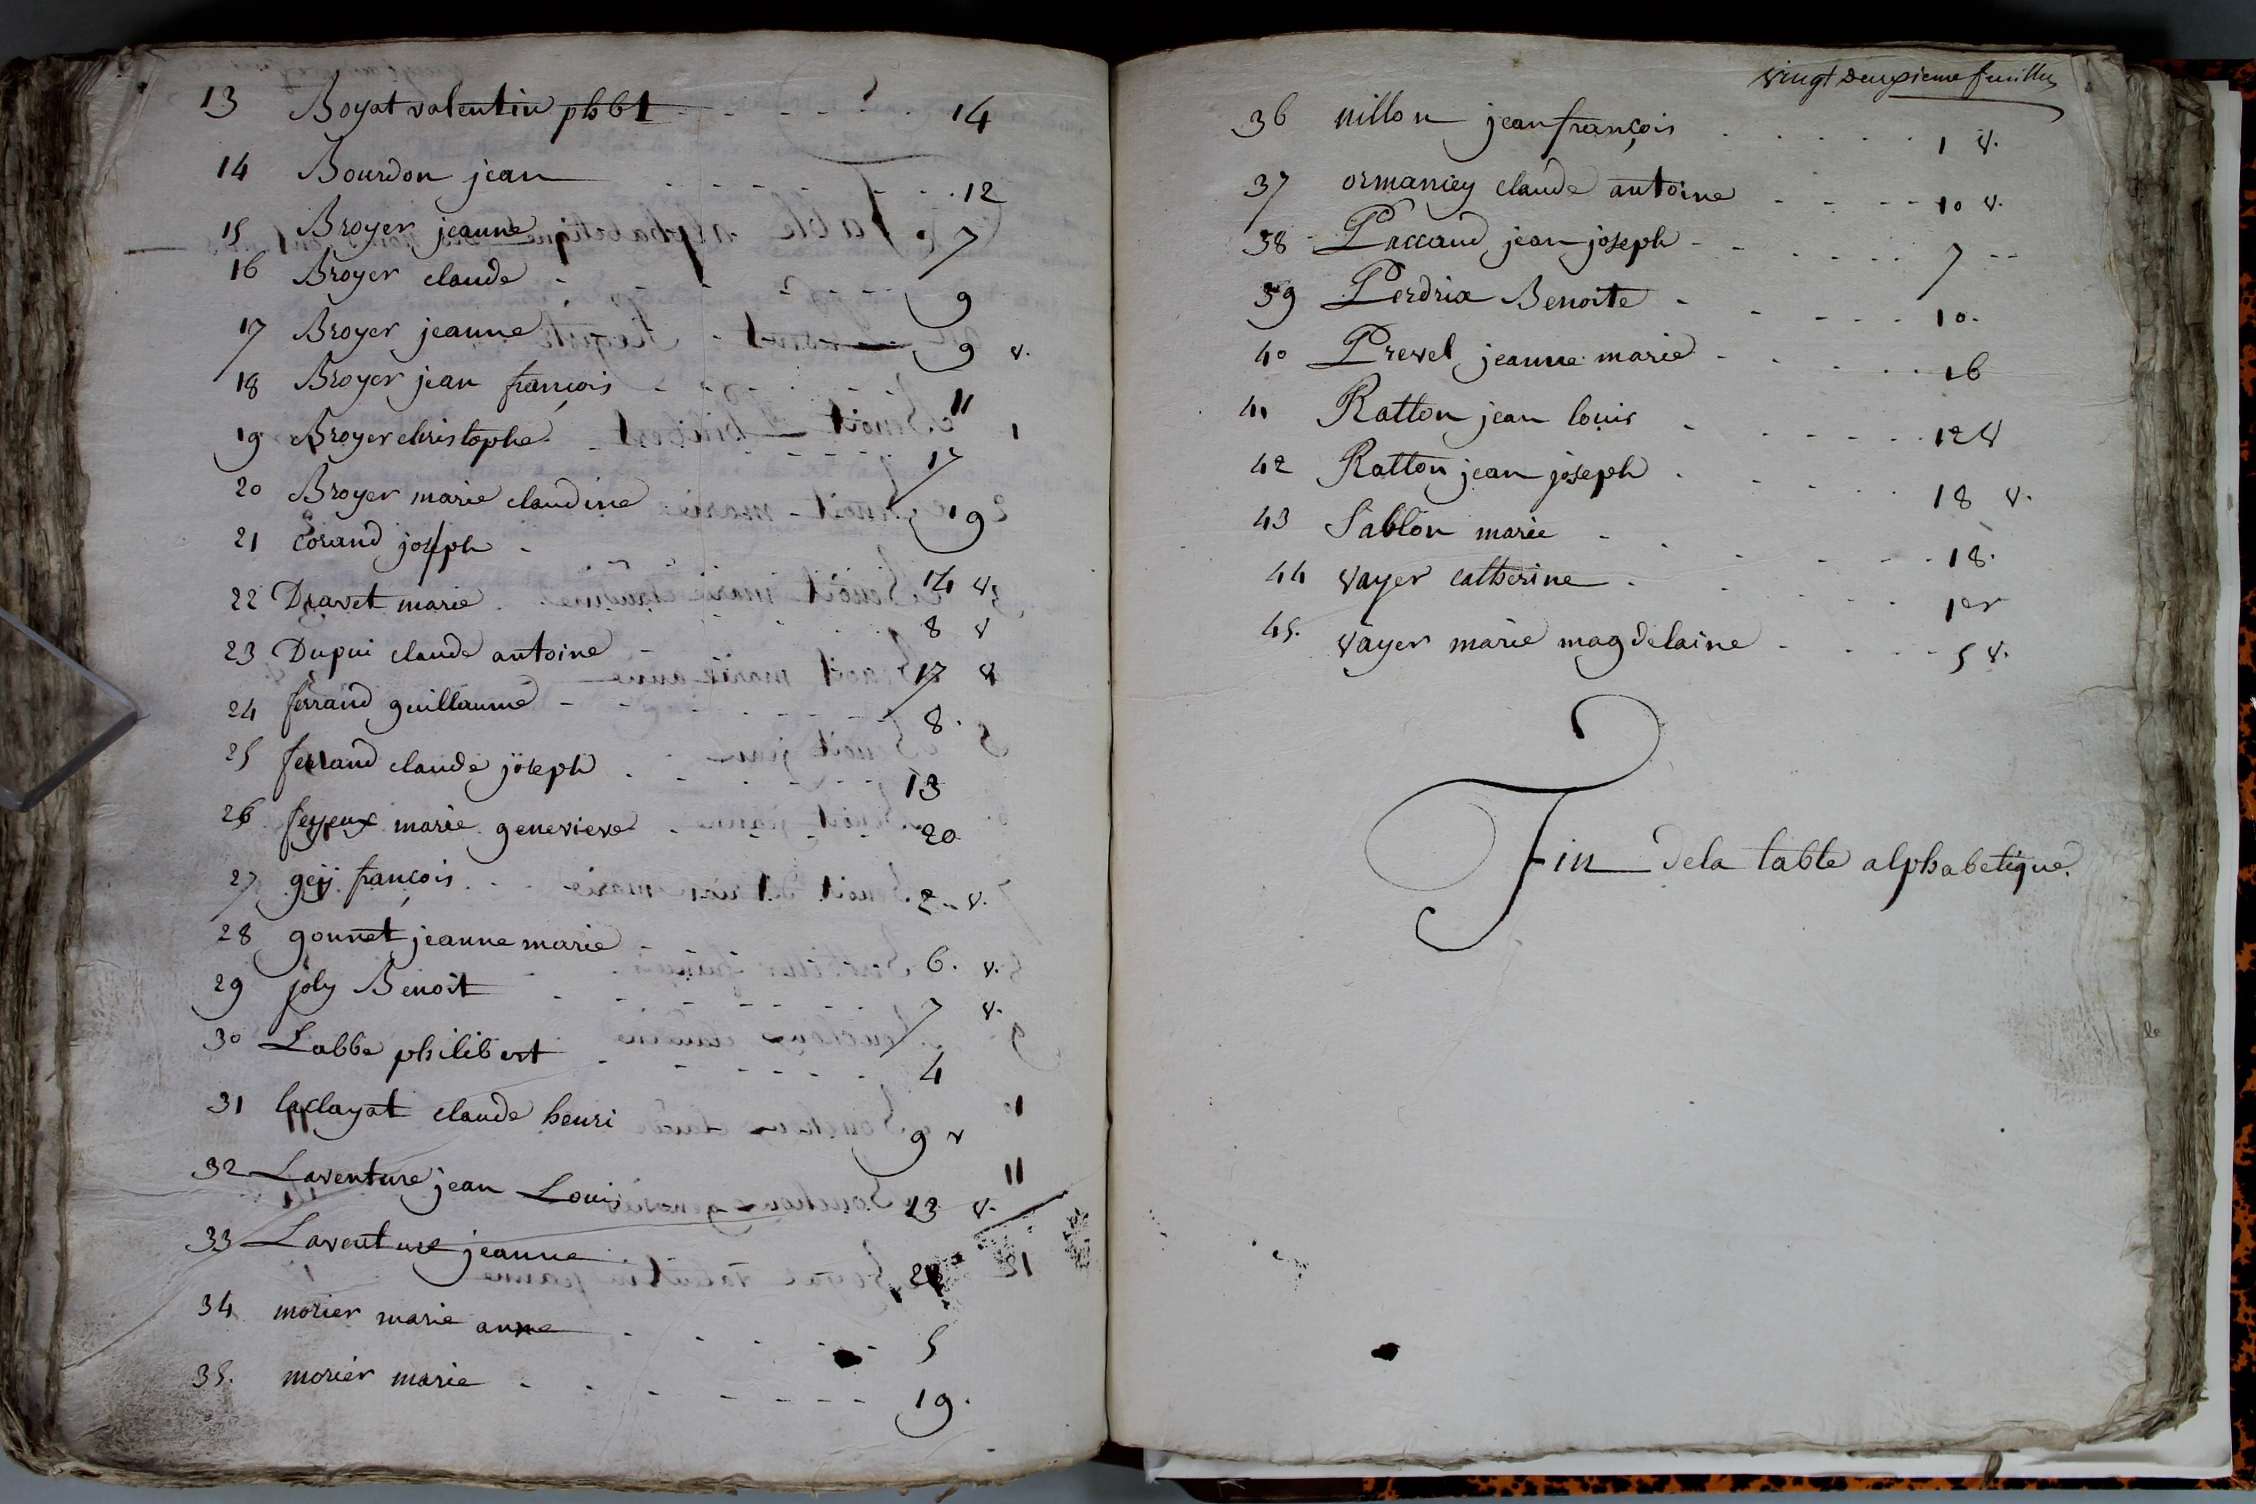 13 Boyat valentin phbt - - - - - - 14
14 Bourdon jean - - - - - - 12
15 Broyer jeanne 7
16 Broyer claude - - - - - - 9
17 Broyer jeanne 9 v.
18 Broyer jean françois - - - - - 11
19 Broyer christophe - - - - - 17
20 Broyer marie claudine 19
21 Corand joseph - 14 v
22 Dravet marie - - - - 8 v
23 Dupui claude antoine - 17 v
24 ferrand guillaume - - - - - - 8.
25 ferrand claude joseph - - - - - 13
26 feyeux marie genevieve - - - - 20
27 gey françois - - - 2 - v.
28 gonnet jeanne marie - - 6. v.
29 joly Benoit - - - - - - 7 v.
30 Labbe philibert - - - - - - 4
31 laclayat claude henri 9 v
32 Laventure jean Louis 13 v.
33 Laventure jeanne
34 morier marie anne - - - - - 5
35. morier marie - - - - - - - 19.
vingt deuxieme feuillet
36 nillon jean françois - - - - - 1 v.
37 ormancey claude antoine - - - - 10 v.
38 Paccaud jean joseph - - - - - 7 --
39 Perdrix Benoite - - - - - 10.
40 Prevel jeanne marie - - - - - 16
41 Ratton jean louis - - - - - 12 v
42 Ratton jean joseph - - - - 18 v.
43 Sablon marie - - - - - - 18.
44 vayer catherine - - - - 1er
45. vayer marie magdelaine - - - - 5 v.
Fin de la table alphabetique.